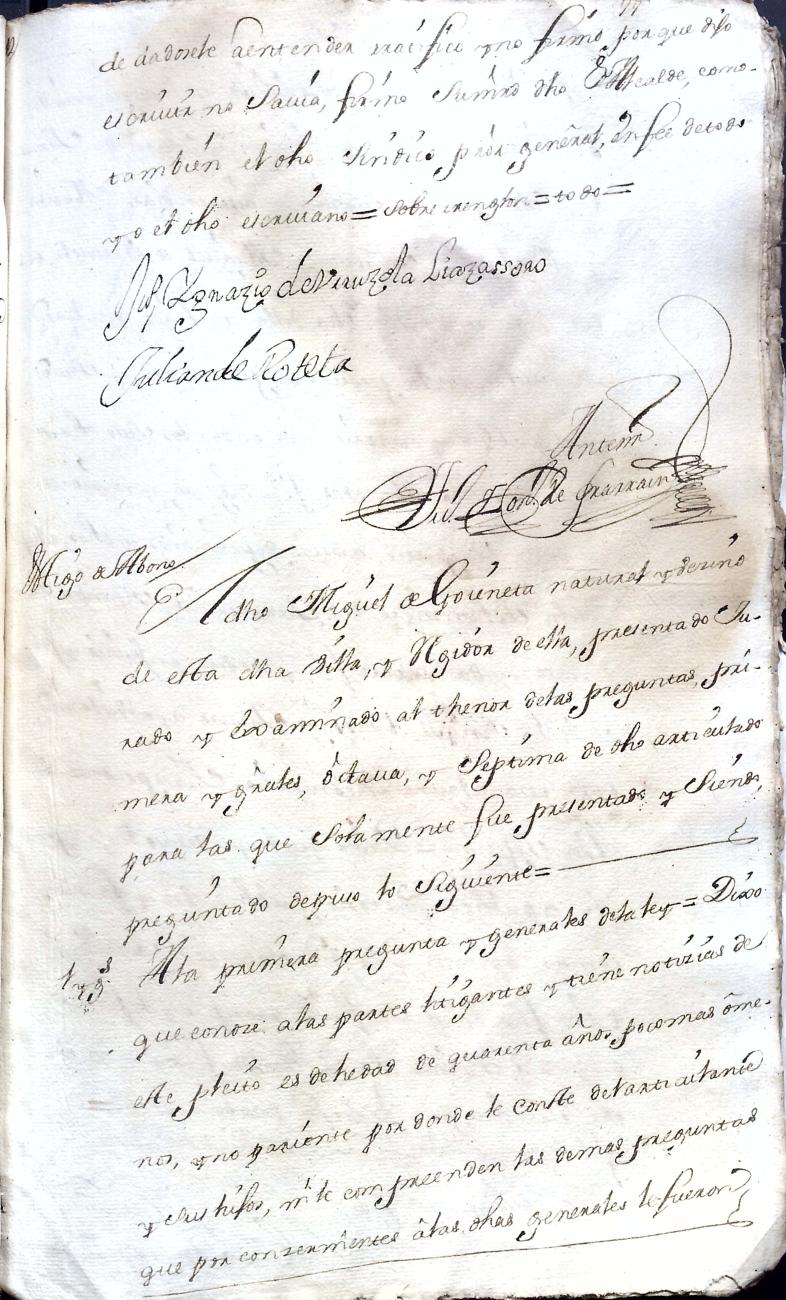 de dadosele aentender ratifico y no firmo porque dijo
escriuir no Sauia, firmo Sumrd dho Alcalde, como-
tambien el dho Sindico prôr genêral, en fee detodo
yo el dho escriuano= sobre renglon=todo=
Ygnazio de Liazassoro
Julian de Roteta
Antemi
Migo
El dho Miguel de Goieneta natural y vezino
de esta dha villa, y Regidor de ella, presentado Ju-
rado y Examinado al thenor delas preguntas, pri-
mera y grâles, ôctaua, y Septima de dho articulado
para las que Solamente fue presentado y Siendo,
preguntado depuso lo Siguiente=
1 y gs
Ala primera pregunta y generales dela ley= Dixo
que conoze alas partes litigantes y tiene notizias de
este pleito es dehedad de quarenta años pocomas ôme-
nos, y no pariente por donde le Conste del articulante
y sus hijos, ni le compreenden las demas preguntas
que por conzernientes âlas dhas generales le fueron